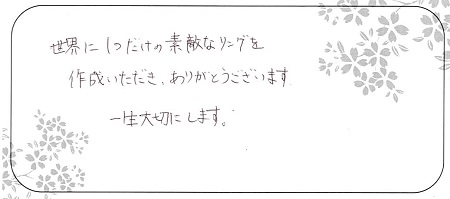 世界に1つだけの素敵なリングを
作成いただき、ありがとうございます
一生大切にします。